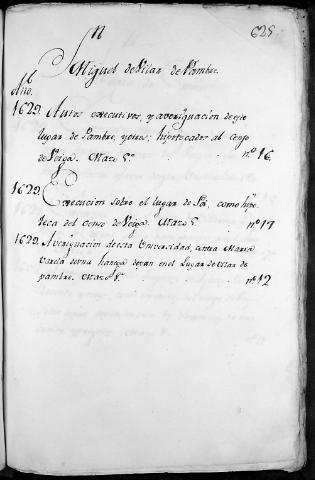 n
625
S Miguel de Vilar de Pambre.
Año.
1629. Autos executivos, y averiguación de este
lugar de Pambre, y otros; hipotecados al censo
de Veiga. Mazo 5º. nº 16.
1629. Execucion sobre el lugar de Sá, como hipo
teca del censo de Veiga. Mazo 5. nº 17
1629. Averiguación de esta Universidad, contra Maria
Varela de una hanega de pan en el Lugar de Vilar de
pambre. Mazo nº 12